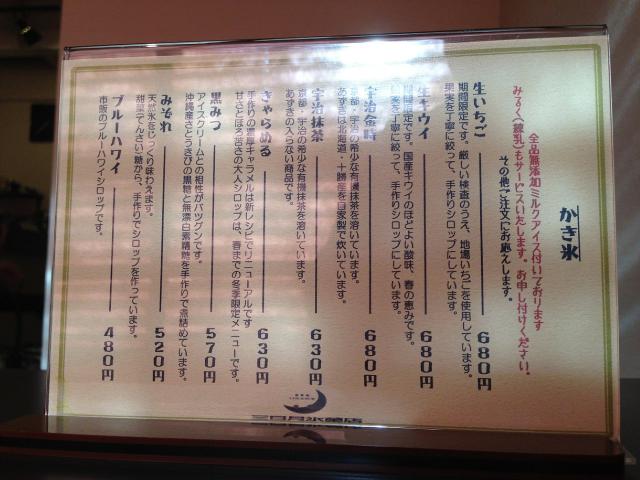 かき氷
全品無添加ミルクアイス付いております
みるく(練乳)もサービスいたします。お申し付けください。
その他ご注文にお応えします。
生いちご 680円
期間限定です。厳しい検査のうえ、地場いちごを使用しています。
果実を丁寧に絞って、手作りシロップにしています。
生キウイ 680円
期間限定です。国産キウイのほどよい酸味、春の恵みです。
果実を丁寧に絞って、手作りシロップにしています。
宇治金時 680円
京都・宇治の希少な有機抹茶を溶いています。
あずきは北海道・十勝産を自家製で炊いています。
宇治抹茶 630円
京都・宇治の希少な有機抹茶を溶いています。
あずきの入らない商品です。
きゃらめる 630円
手作りの濃厚キャラメルは新レシピでリニューアルです
甘さとほろ苦さの大人シロップは、春までの冬季限定メニューです。
黒みつ 570円
アイスクリームとの相性がバツグンです。
沖縄産さとうきびの黒糖と無漂白素精糖を手作りで煮詰めています。
みぞれ 520円
天然氷をじっくり味わえます。
甜菜(てんさい)糖から、手作りでシロップを作っています。
ブルーハワイ 480円
市販のブルーハワイシロップです。
三日月氷菓店